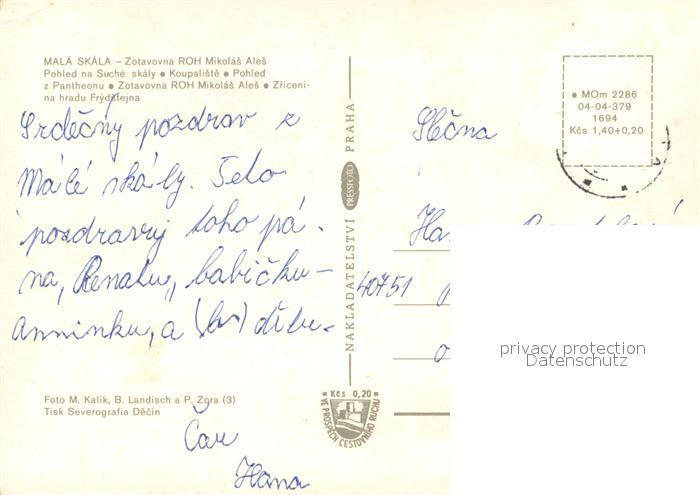 MALÁ SKÁLA – Zotavovna ROH Mikoláš Aleš
Pohled na Suché skály • Koupaliště • Pohled
z Pantheonu • Zotavovna ROH Mikoláš Aleš • Zříceni-
na hradu Frýdštejna
Srdečný pozdrav z
Malé skály. Teto
pozdravuj toho pá-
na, Renatu, babičku-
Anninku, a dědu.
Čau
Hana
Foto M. Kalík, B. Landisch a P. Zora (3)
Tisk Severografia Děčín
NAKLADATELSTVÍ PRESSFOTO PRAHA
• Kčs 0,20 •
VE PROSPĚCH CESTOVNÍHO RUCHU
• MOm 2286
04-04-379
1694
Kčs 1,40+0,20
Slečna
40751
privacy protection
Datenschutz